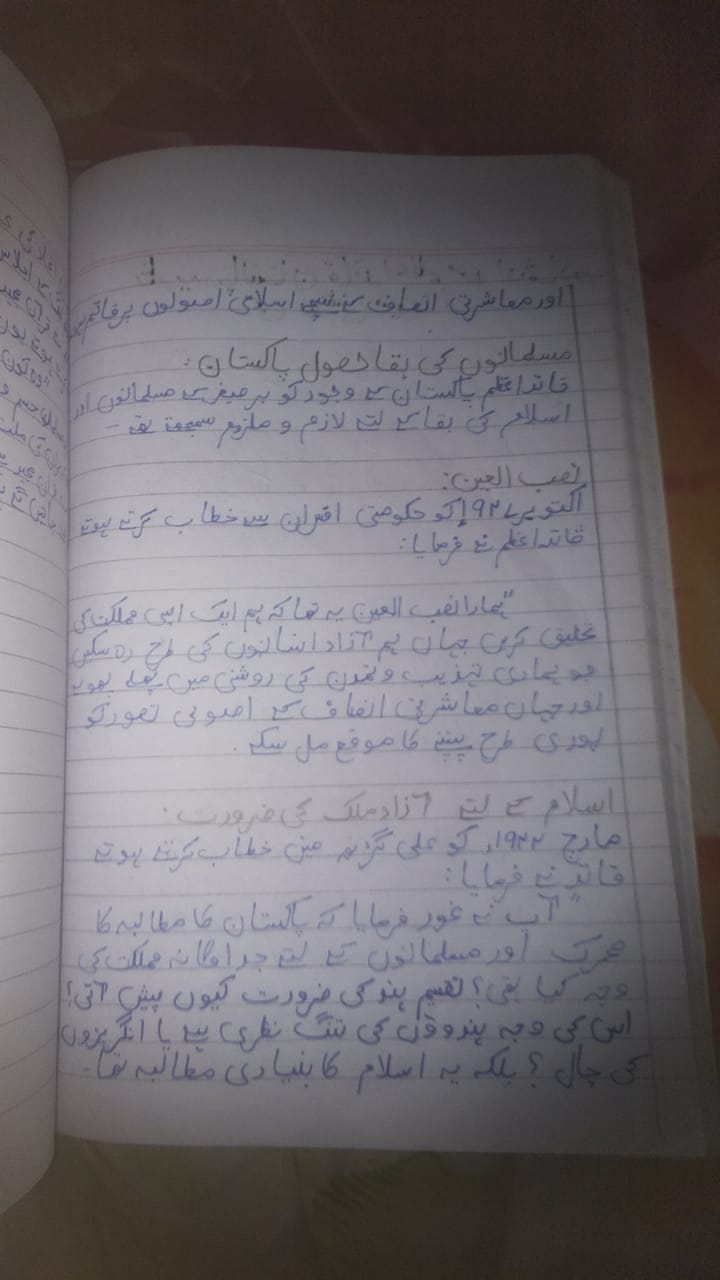 اور معاشرتی انصاف کے اسلامی اصولوں پر قائم ہو
مسلمانوں کی بقا حصول پاکستان:
قائداعظم پاکستان کے وجود کو برصغیر کے مسلمانوں اور
اسلام کی بقا کے لئے لازم و ملزوم سمجھتے تھے۔
نصب العین:
اکتوبر ۱۹۴۷ کو حکومتی افسران سے خطاب کرتے ہوئے
قائداعظم نے فرمایا:
"ہمارا نصب العین یہ تھا کہ ہم ایک ایسی مملکت کی
تخلیق کریں جہاں ہم آزاد انسانوں کی طرح رہ سکیں
جو ہماری تہذیب و تمدن کی روشنی میں پھلے پھولے
اور جہاں معاشرتی انصاف کے اصولی تصور کو
پوری طرح پنپنے کا موقع مل سکے۔
اسلام کے لئے آزاد ملک کی ضرورت:
مارچ ۱۹۴۴ء کو علی گڑھ میں خطاب کرتے ہوئے
قائد نے فرمایا:
"آپ نے غور فرمایا کہ پاکستان کا مطالبہ کا
محرک اور مسلمانوں کے لئے جداگانہ مملکت کی
وجہ کیا تھی؟ تقسیم ہند کی ضرورت کیوں پیش آئی؟
اس کی وجہ ہندوؤں کی تنگ نظری ہے یا انگریزوں
کی چال؟ بلکہ یہ اسلام کا بنیادی مطالبہ تھا۔